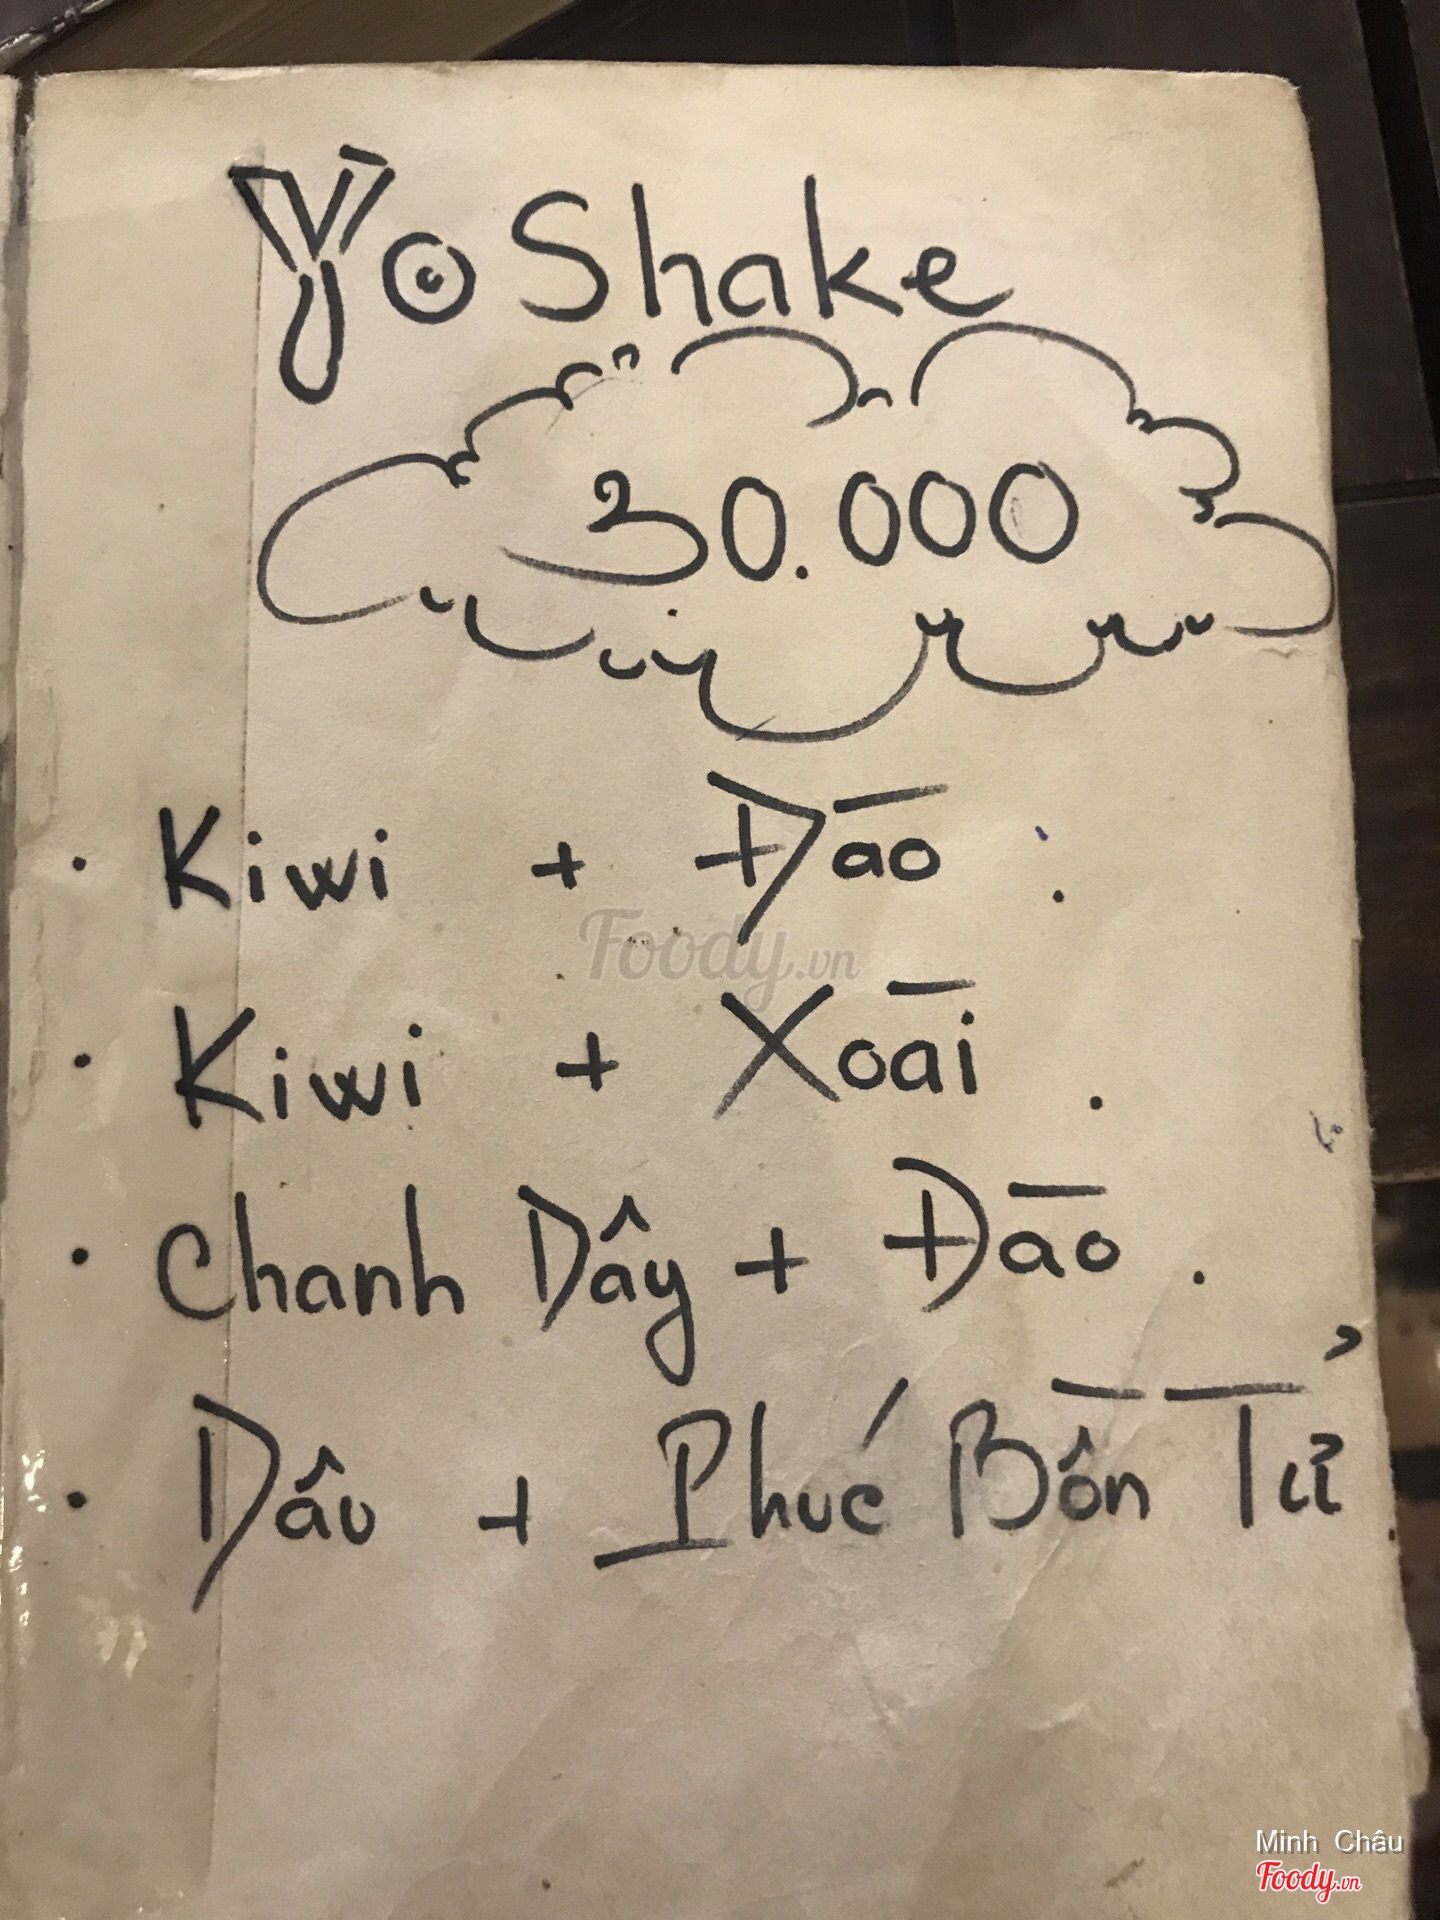 YoShake
30.000
· Kiwi + Đào :
· Kiwi + Xoài .
· Chanh Dây + Đào .
· Dâu + Phúc Bồn Tử .
Foody.vn
Minh Châu
Foody.vn